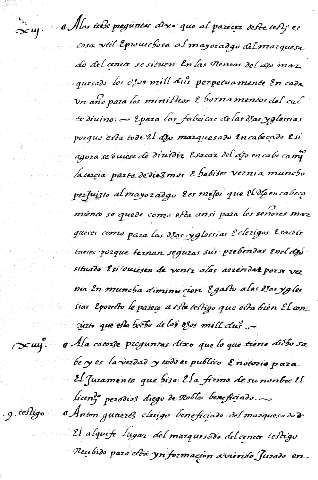 xiij. A las treze preguntas dixo que al parecer deste testigo es
cosa util e provechosa al mayoradgo del marquesa
do del cenete se sieven en las Rentas del dho mar
quesado los dhos mill duºs perpetuamente En cada
un año para los ministros E hornamentos del cul
to divino. E para las fabricas de las dhas yglesias
porque esta todo El dho marquesado Encabeçado E si
agora se oviese de dividir E sacar del dho encabeçamyº
la tacia parte de diezmos E habizes vernia muncho
perjuyzio al mayoradgo E es mejor que El dho encabeça
miento se quede como esta ansi para los señores mar
queses como para las dhas yglesias E clerigos E sacris
tanes porque ternan seguras sus prebendas En el dho
situado E si oviesen de venir a las arrendar por se ver
na En muncha diminucion E gasto a las dhas ygle
sias E por esto le parece a este testigo que esta bien El con
cierto que esta hecho de los dhos mill duºs.
xiiijº. A la catorze preguntas dixo que lo que tiene dicho sa
be y es la verdad y todo es publico E notorio para
El Juramento que hizo E la firmo de su nonbre El
licenciado diego de Robles beneficiado.
9. testigo Anton gutierres clerigo beneficiado del marquesado de
El alquife lugar del marquesado del cenete testigo
Recibido para esta ynformacion aviendo Jurado en